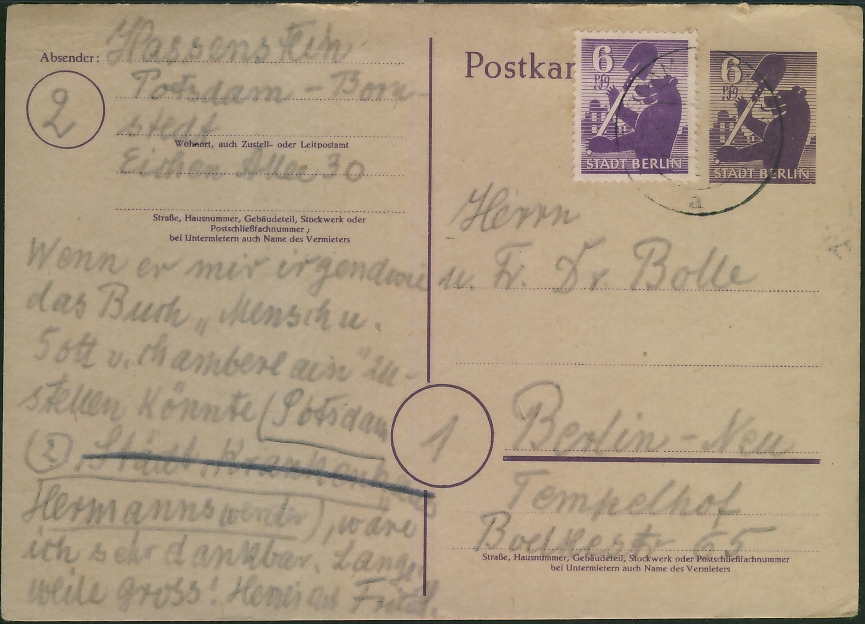 Absender: Hassenstein
Potsdam - Born-
stedt
Wohnort, auch Zustell- oder Leitpostamt
Eichen Allee 30
2
Straße, Hausnummer, Gebäudeteil, Stockwerk oder
Postschließfachnummer;
bei Untermietern auch Name des Vermieters
Wenn er mir irgendwie
das Buch „Mensch u.
Gott v. Chamberlain" zu-
stellen könnte (Potsdam
(2) Städt. Krankenhaus
Hermannswerder), wäre
ich sehr dankbar. Lange-
weile gross!
Postkar
6
Pfg
STADT BERLIN
6
Pfg
STADT BERLIN
a
Herrn
u. Fr. Dr. Bolle
1
Berlin - Neu
Tempelhof
65
Straße, Hausnummer, Gebäudeteil, Stockwerk oder Postschließfachnummer
bei Untermietern auch Name des Vermieters